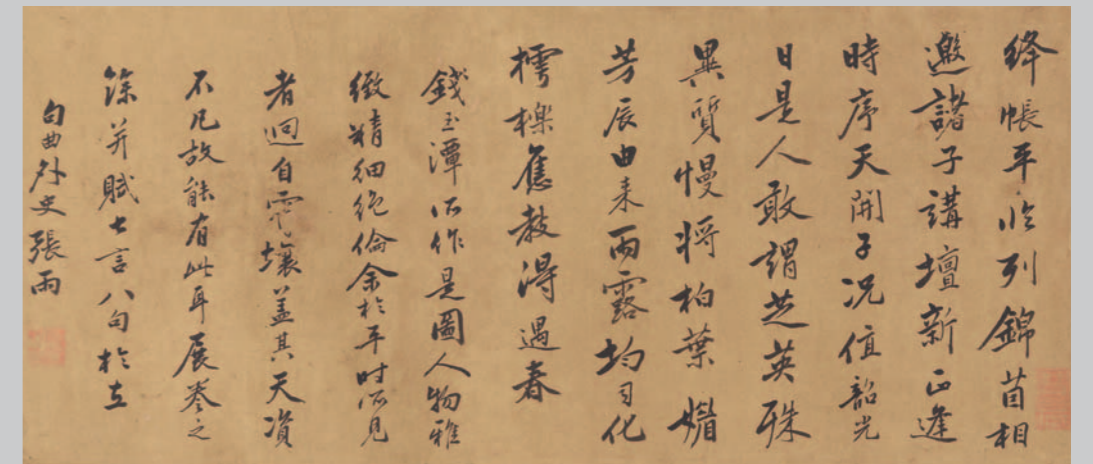 絳帳平临列錦茵相
邀諸子講壇新正逢
時序天開子況值韶光
日是人敢謂芝英殊
異質慢將柏葉媚
芳辰由来雨露均匀化
樗櫟應教得遇春
錢玉潭所作是圖人物雅
緻精細絶倫余於平时所見
者迥自霄壤蓋其天資
不凡故能有此耳展卷之
餘并賦七言八句於左
句曲外史張雨